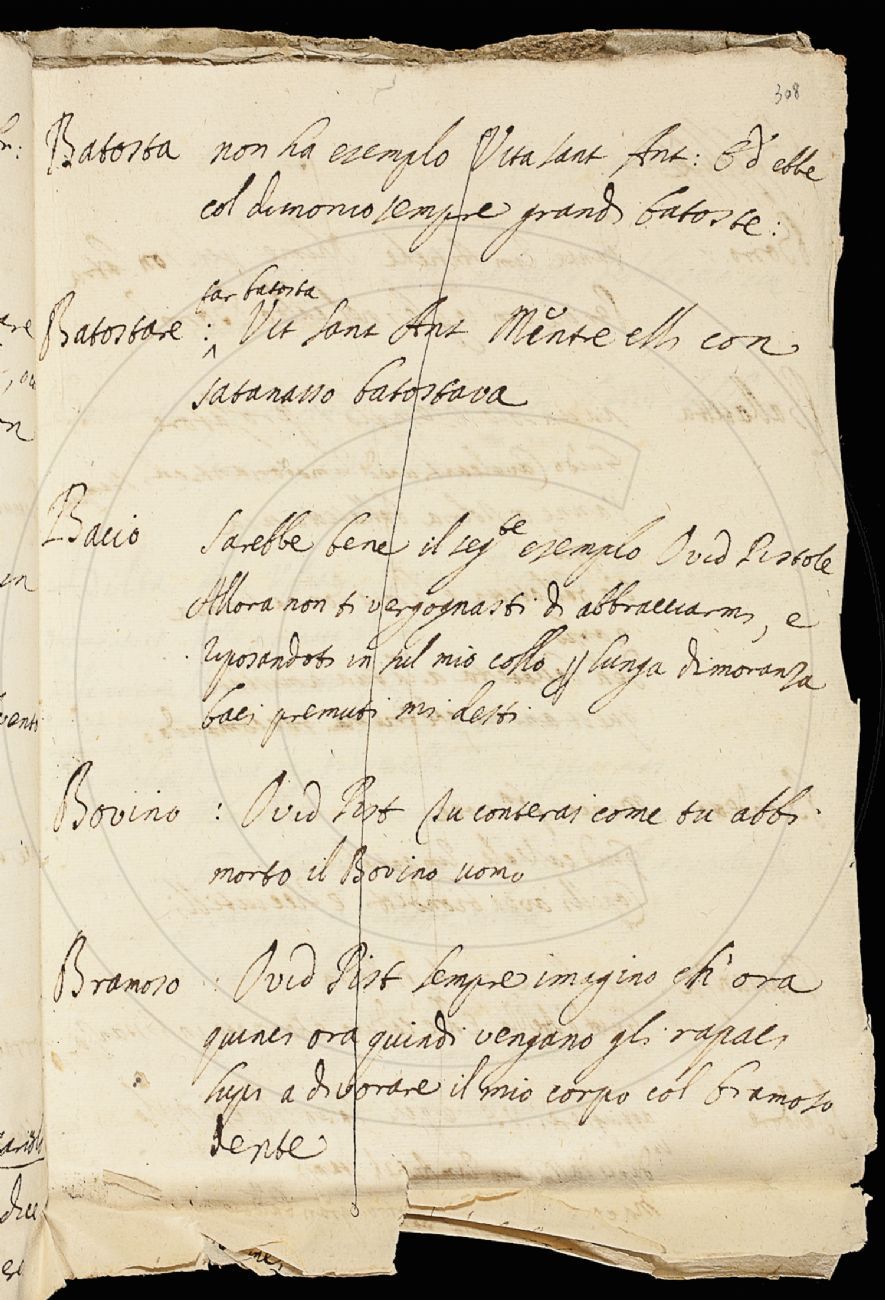 308
Batosta non ha esemplo Vita sant Ant: ebbe
col dimonio sempre grandi batoste:
far batosta
Batostare : Vit sant Ant Mentre elli con
satanasso batostava
Bacio Sarebbe bene il seg.te esemplo Ovid Pistole
Allora non ti vergognasti di abbracciarmi, e
riposandoti in sul mio collo // lunga dimoranza
baci premuti mi desti
Bovino : Ovid Pist Tu conterai come tu abbi
morto il Bovino uomo
Bramoso : Ovid Pist sempre imagino ch' ora
quinci ora quindi vengano gli rapaci
lupi a divorare il mio corpo col bramoso
dente